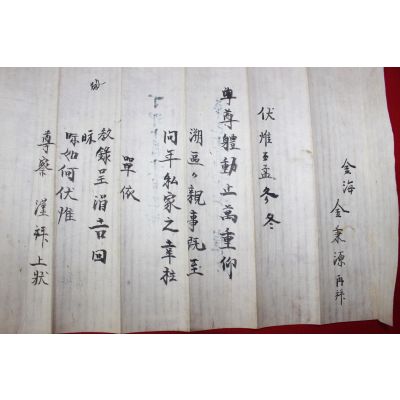 金海 金秉源 再拜
伏惟孟冬冬
尊尊體動止萬重仰
溯區々親事旣至
問年私家之幸柱
單依
敎錄呈涓吉回
如何伏惟
尊察 謹拜上狀